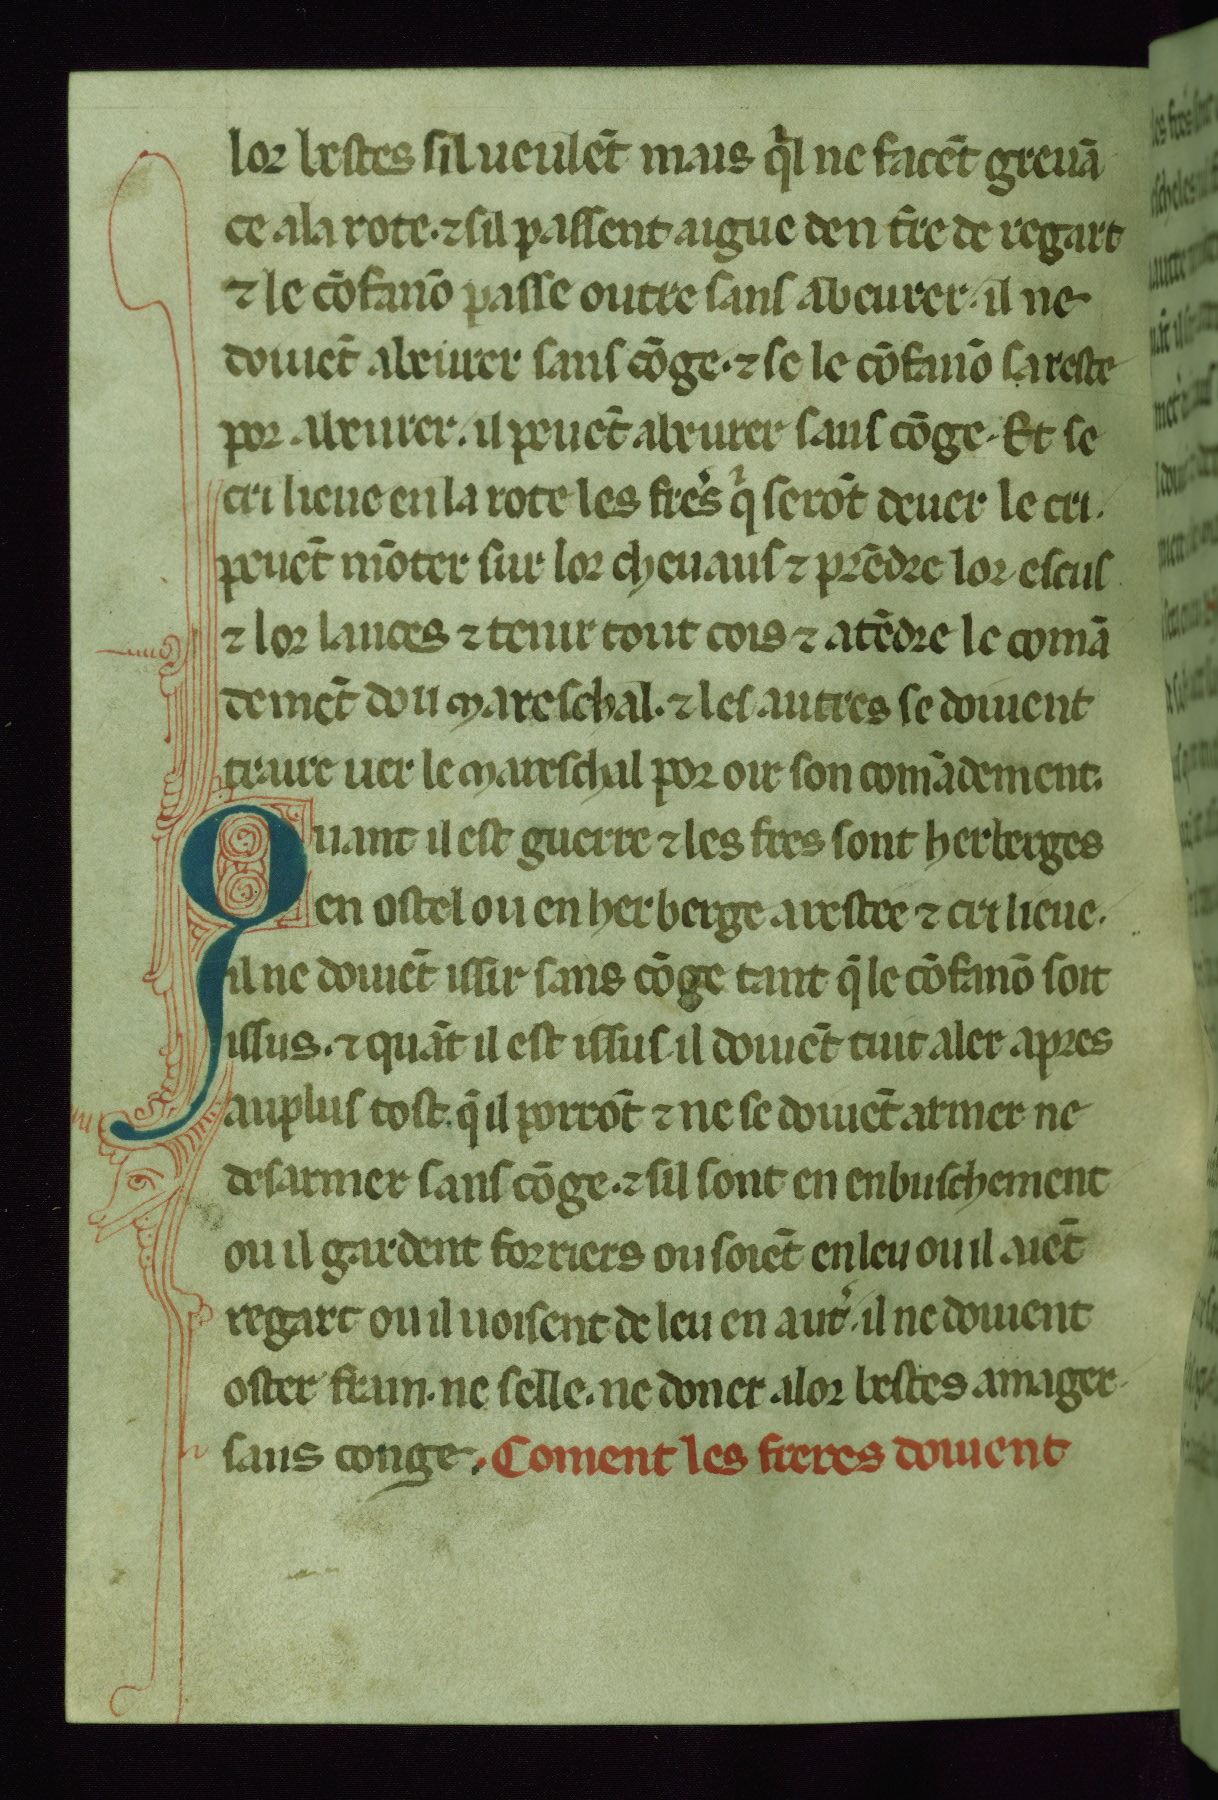 lor bestes sil ueulēt mais q̉l ne facēt greuā
ce a la rote. ⁊ sil passent aigue den t̄re de regart
⁊ le cōfanō passe outre sans abeurer. il ne
doiuēt abeiurer sans cōge. ⁊ se le cōfanō sareste
por abeurer. il peuēt abeurer sans cōge. Et se
cri lieue en la rote les fres̉ qⁱ serōt deuer le cri.
peuēt mōter sur lor cheuaus ⁊ prēdre lor escus
⁊ lor lances ⁊ tenir tout cois ⁊ atēdre le comā
demēt dou mareschal. ⁊ les autres se doiuent
traire uer le mareschal por oir son comādement.
Quant il est guerre ⁊ les fres sont herberges
en ostel ou en herberge arestee ⁊ cri lieue.
il ne doiuēt issir sans cōge tant q̄ le cōfanō soit
issus. ⁊ quāt il est issus il doiuēt tuit aler apres
au plus tost. q̄ il porrōt ⁊ ne se doiuēt armer ne
desarmer sans cōge. ⁊ sil sont en enbuschement
ou il gardent forriers ou soiēt en leu ou il aiēt
regart ou il uoisent de leu en aut̉. il ne doiuent
oster frain. ne selle. ne doner a lor bestes a mager
sans conge. Coment les freres doiuent